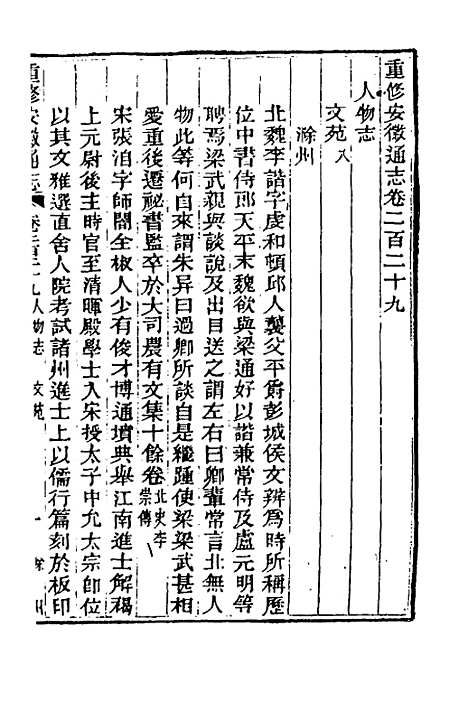 重修安徽通志卷二百二十九
人物志
文苑八
滁州
北魏李諧字虔和頓邱人襲父平爵彭城侯文辨爲時所稱歷
位中書侍郎天平末魏欲與梁通好以諧兼常侍及盧元明等
聘焉梁武親與談說及出目送之謂左右曰卿輩常言北無人
物此等何自來謂朱异曰過卿所談自是繼踵使梁梁武甚相
愛重後遷祕書監卒於大司農有文集十餘卷北史李崇傳
宋張洎字師閣全椒人少有俊才博通墳典舉江南進士解褐
上元尉後主時官至清暉殿學士入宋授太子中允太宗卽位
以其文雅選直舍人院考試諸州進士上以儒行篇刻於板印
重修安徽通志 卷二百二十九 人物志 文苑 一 滁州